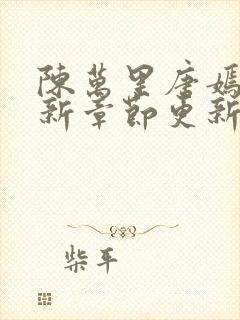 陳萬里唐嫣
新章節更新
柴平